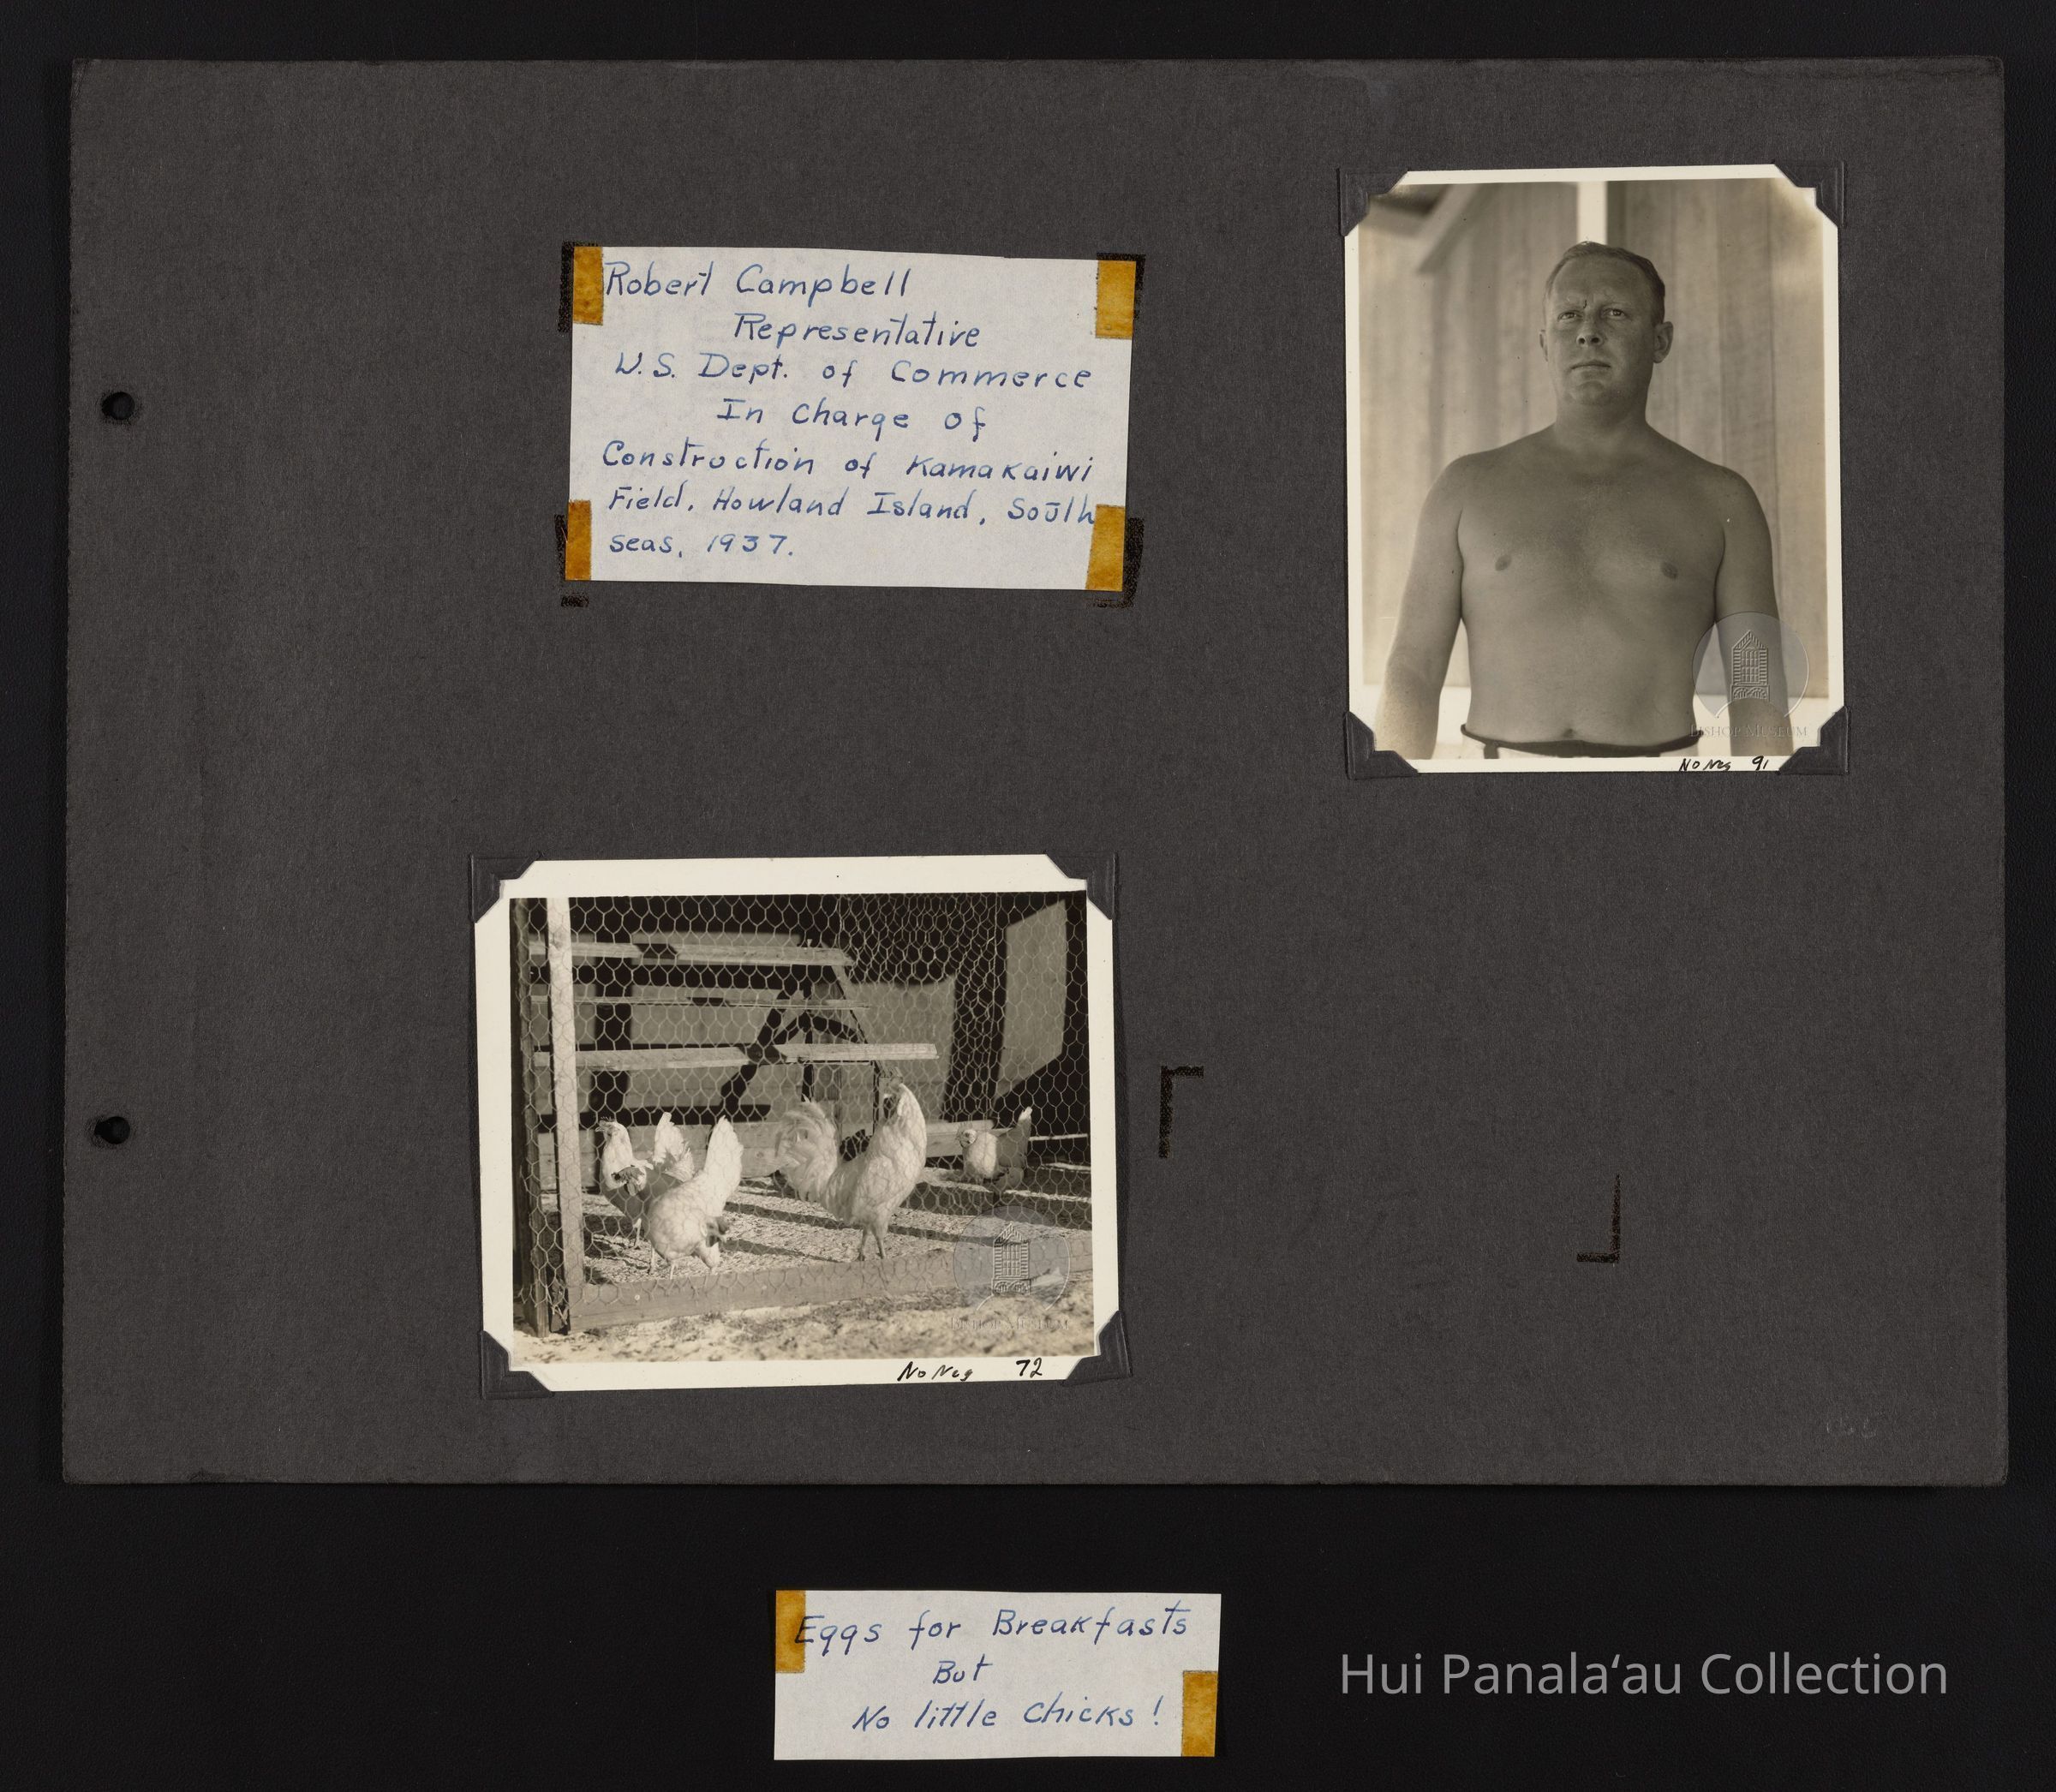 Robert Campbell
Representative
U.S. Dept. of Commerce
In charge of
Construction of Kamakaiwi
Field, Howland Island, South
seas, 1937.
BISHOP MUSEUM
No Neg 91
BISHOP MUSEUM
No Neg 72
Eggs for Breakfasts
But
No little chicks!
Hui Panalaʻau Collection